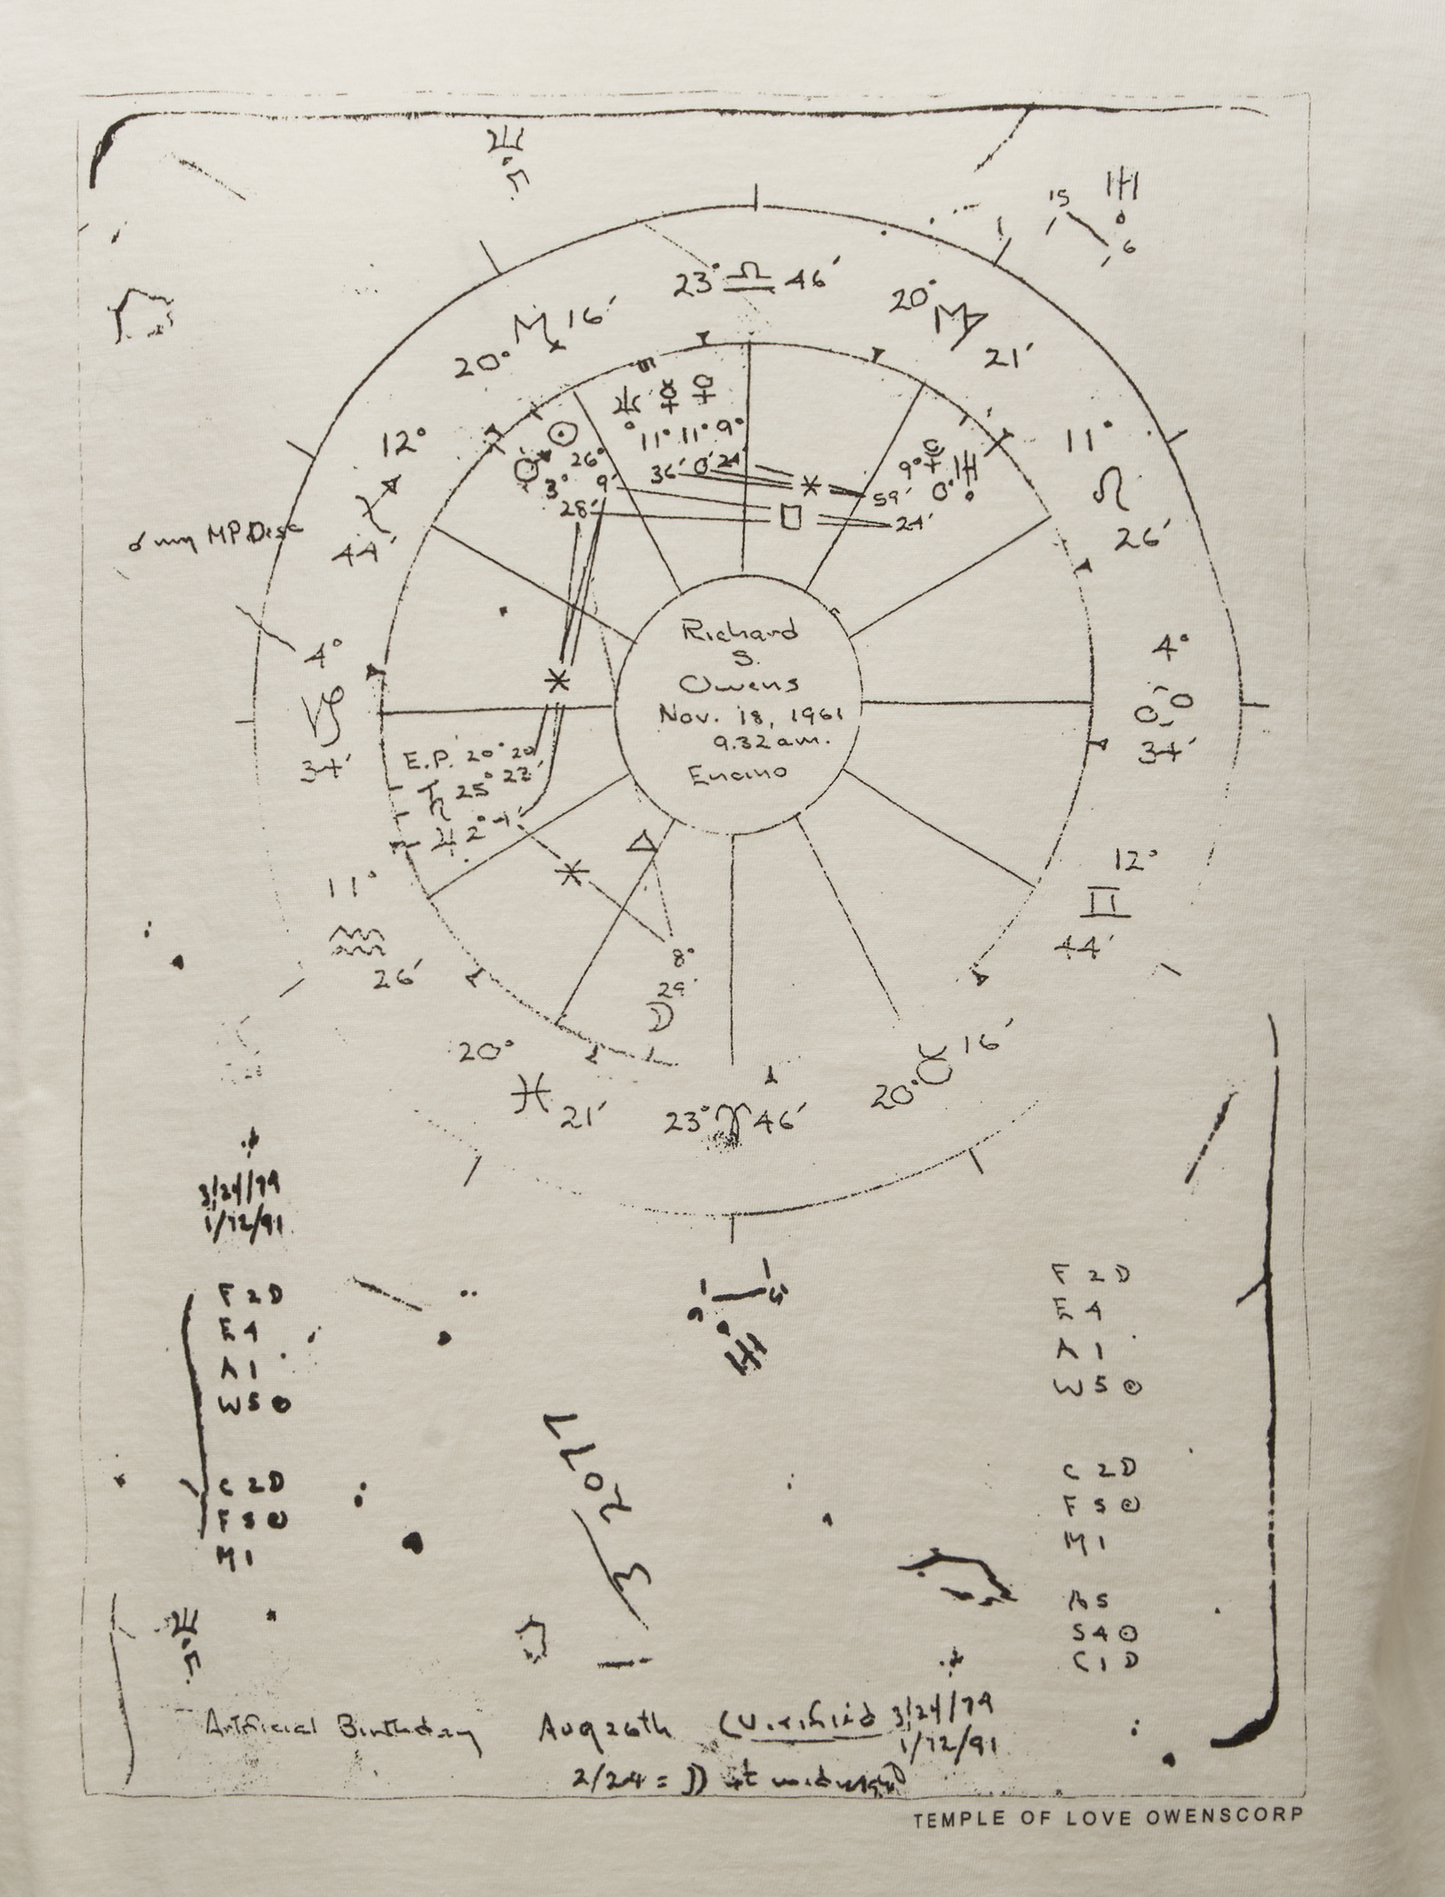 ♆
15 ♅
6
23° ♎ 46′
20° ♏ 16′
20° ♍ 21′
12° ♐ 44′
11° ♌ 26′
♆ ☿ ♀
11° 11° 9°
36′ 0′ 24′
☉ 26° 9′
♂ 3° 28′
9° 59′
♅ 0° 24′
☌ my MP. Desc
4° ♑ 34′
4° ♋ 34′
Richard
S.
Owens
Nov. 18, 1961
9.32 am.
Encino
E.P. 20° 20′
♄ 25° 22′
♃ 2°
11° ♒ 26′
12° ♊ 44′
8°
29′
☽
20° ♓ 21′
23° ♈ 46′
20° ♉ 16′
3/24/79
1/12/91
F 2 D
E 4
A 1
W 5 ⊙
C 2 D
F 5 ⊙
M 1
F 2 D
E 4
A 1
W 5 ⊙
C 2 D
F 5 ⊙
M 1
A 5
S 4 ⊙
C 1 D
♅
♆
Artificial Birthday Aug 26th (Verified 3/24/79
1/12/91
2/24 = ☽ at midnight
TEMPLE OF LOVE OWENSCORP